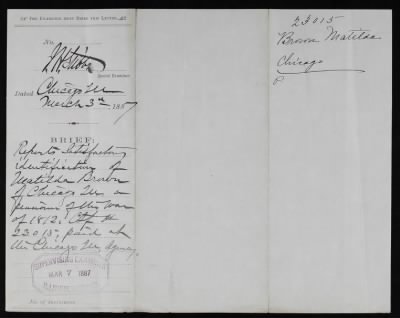 No.
Special Examiner
Dated Chicago Ill
March 3rd 1887
BRIEF:
Reports Satisfactory
identification of
Matilda Brown
of Chicago Ills a
pensioner of the War
of 1812. Ctf #
23015, paid at
the Chicago Ill, Agency.
SUPERVISING EXAMINER
MAR 7 1887
No. of Inclosures
23015
Brown Matilda
Chicago
P